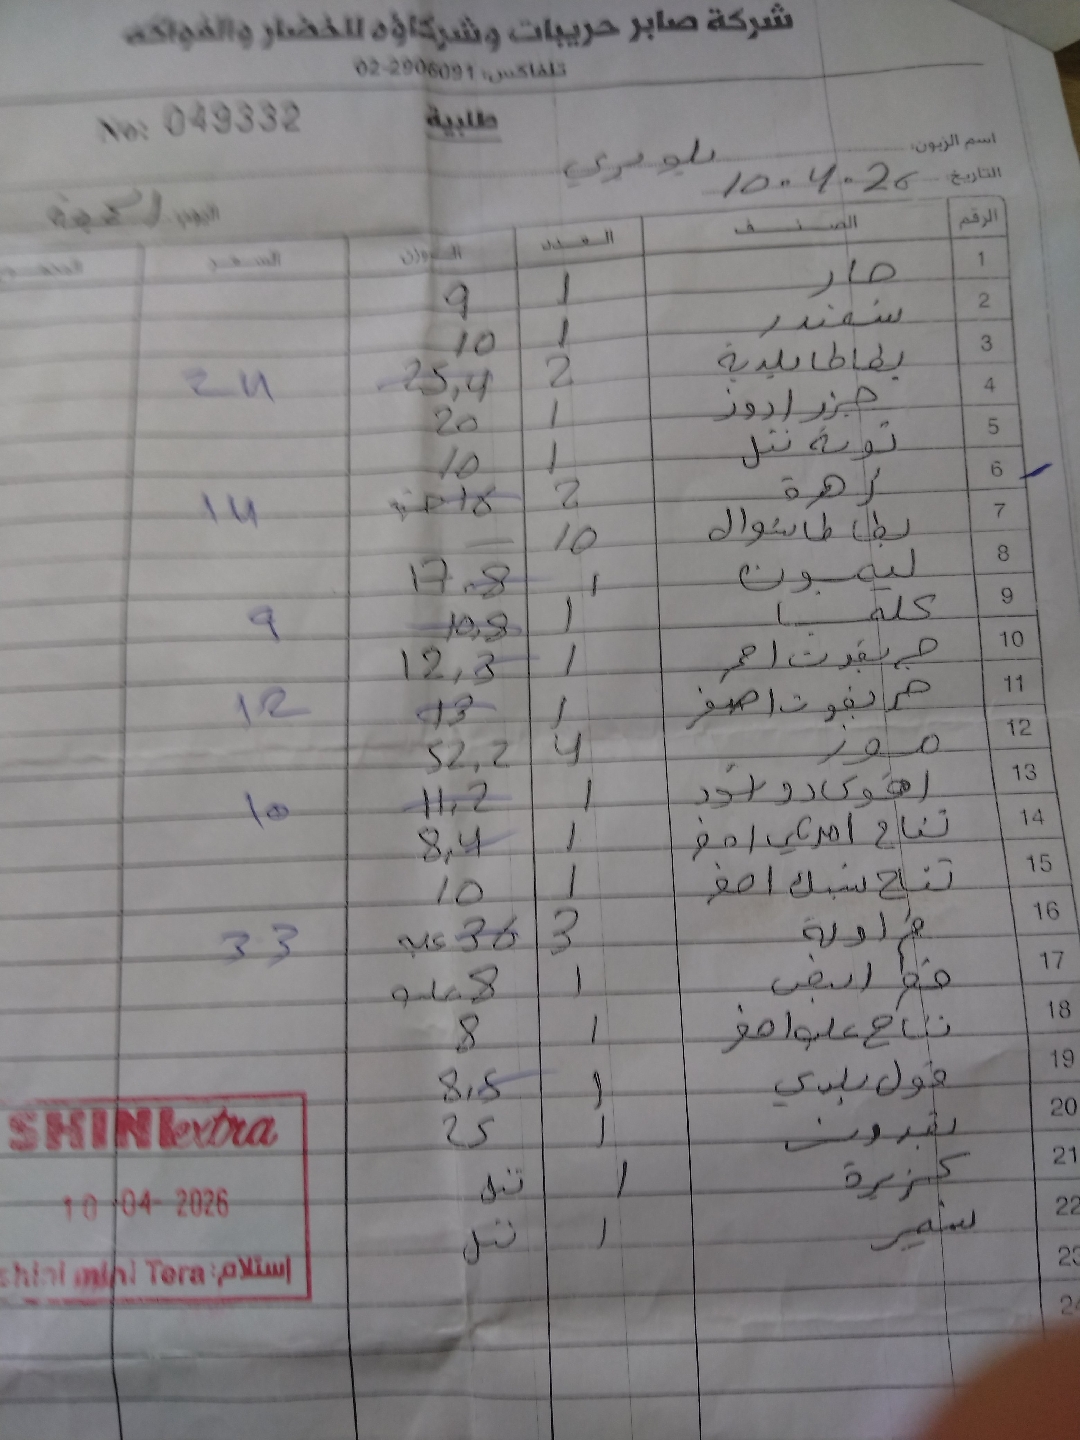 شركة صابر حريبات وشركاؤه للخضار والفواكه
تلفاكس: 02-2906091
No: 049332
طلبية
اسم الزبون:
التاريخ: 10.4.26
اليوم: الجمعة
الرقم الصنف العدد الوزن السعر المجموع
1 حار 1 9
2 شمندر 1 10
3 بطاطا بلدية 2 25,4 24
4 جزر ادوز 1 20
5 تومة نتل 1 10
6 زهرة 2 16 14
7 بطاطا شوال 10 —
8 ليمون 1 17.8
9 كلمنتينا 1 10,8 9
10 جريفوت احمر 1 12,3
11 جريفوت اصفر 1 13 12
12 موز 4 52,2
13 افوكادو 1 11,2 10
14 تفاح اصفر 1 8,4
15 تفاح اصفر 1 10
16 3 36 33
17 ابيض 1 8 علبه
18 تفاح اصفر 1 8
19 فول بلدي 1 8,5
20 1 25
21 كزبرة 1 نتل
22 1 نتل
23
24
SHINI extra
10-04-2026
shini mini Tera :إستلام